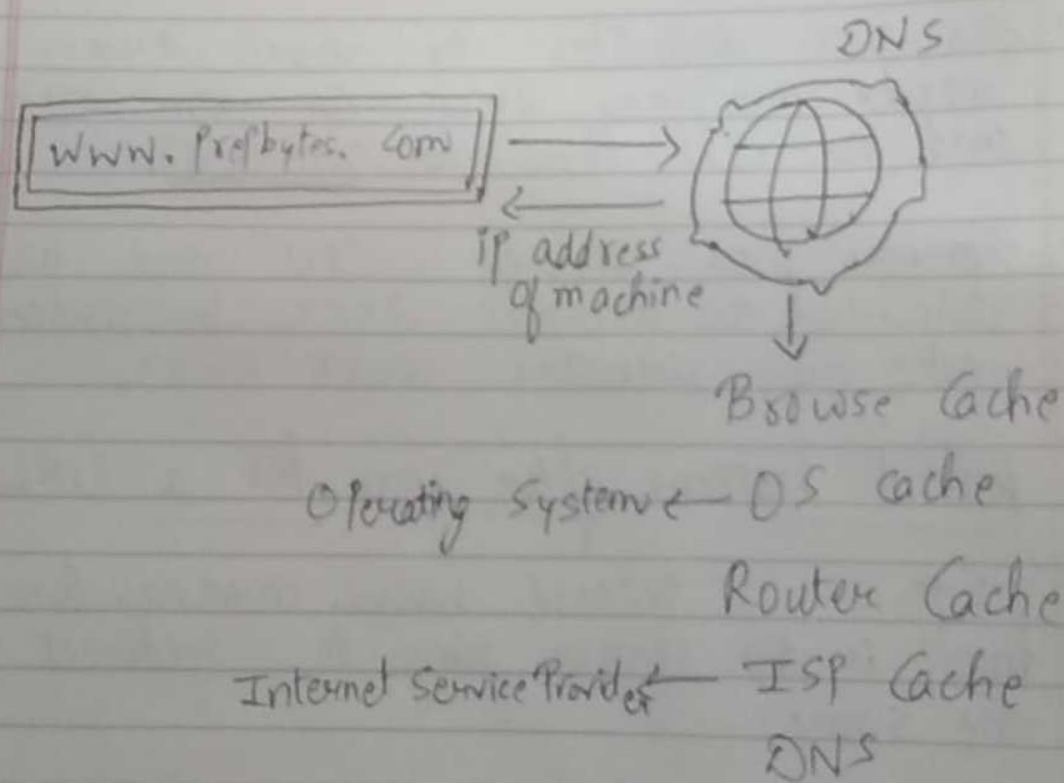 DNS
www. Prepbytes. Com
ip address
of machine
Browse Cache
Operating System ← OS cache
Router Cache
Internet Service Provider ← ISP Cache
DNS